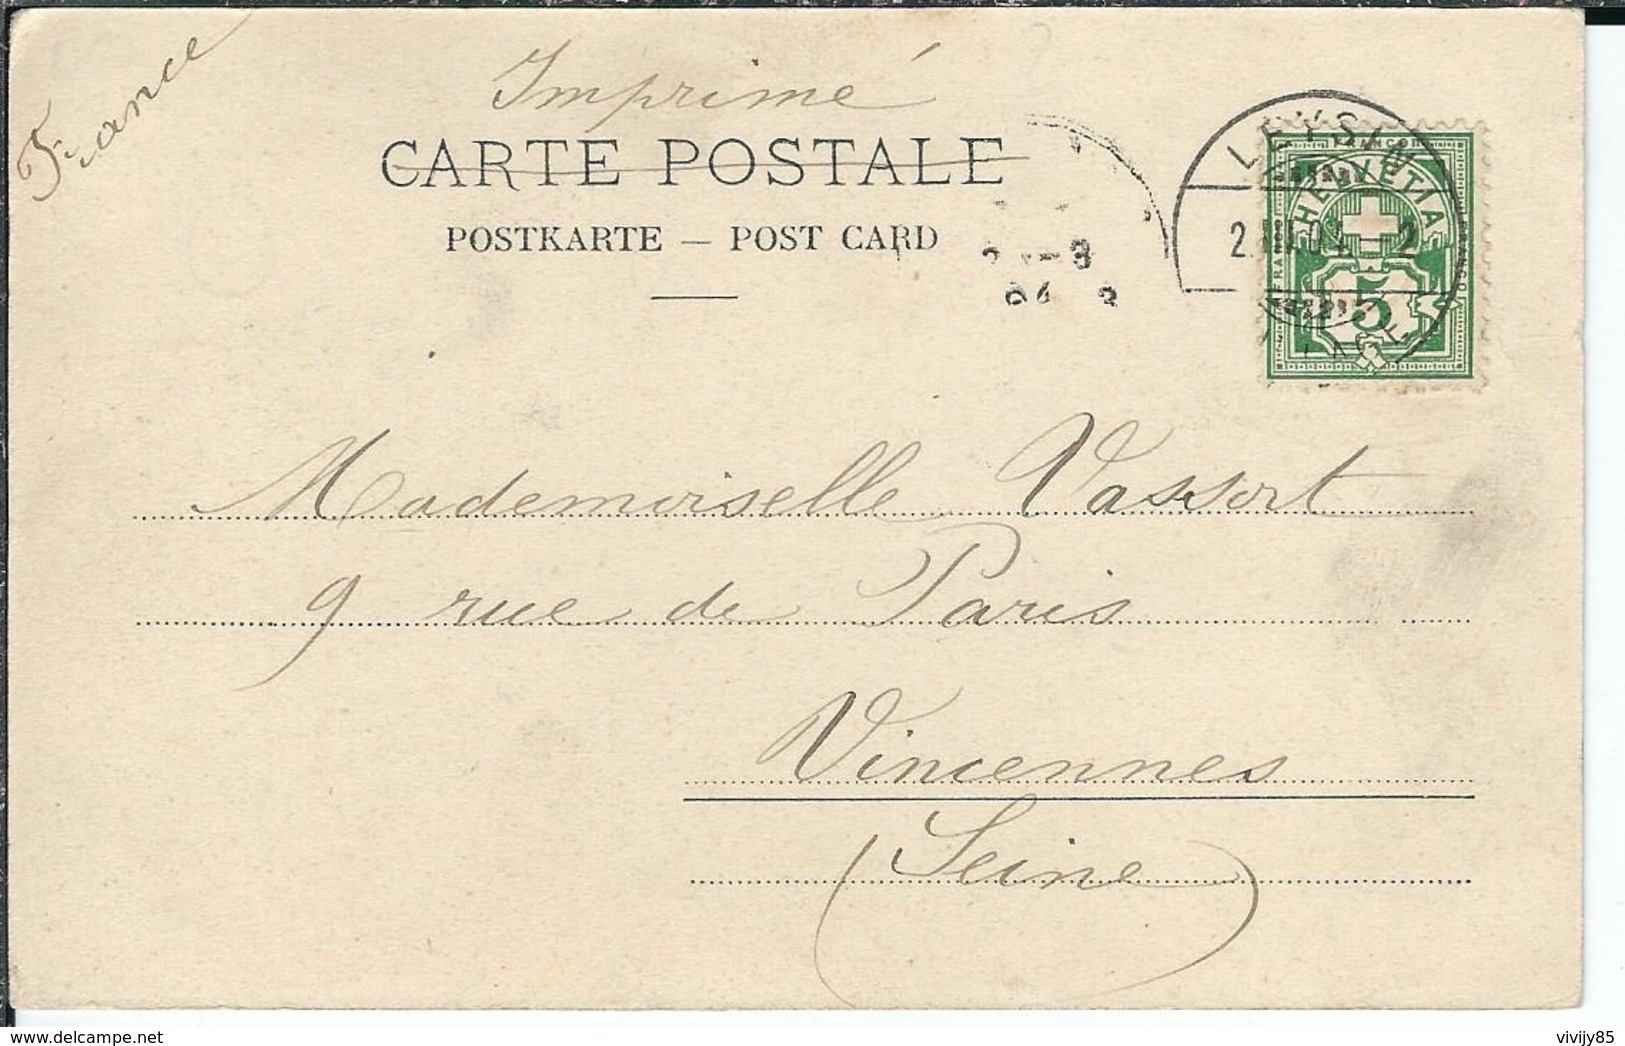 France
Imprimé
CARTE POSTALE
POSTKARTE — POST CARD
LEYSIN
HELVETIA
5
Mademoiselle Vassort
9 rue de Paris
Vincennes
(Seine)
vivijy85